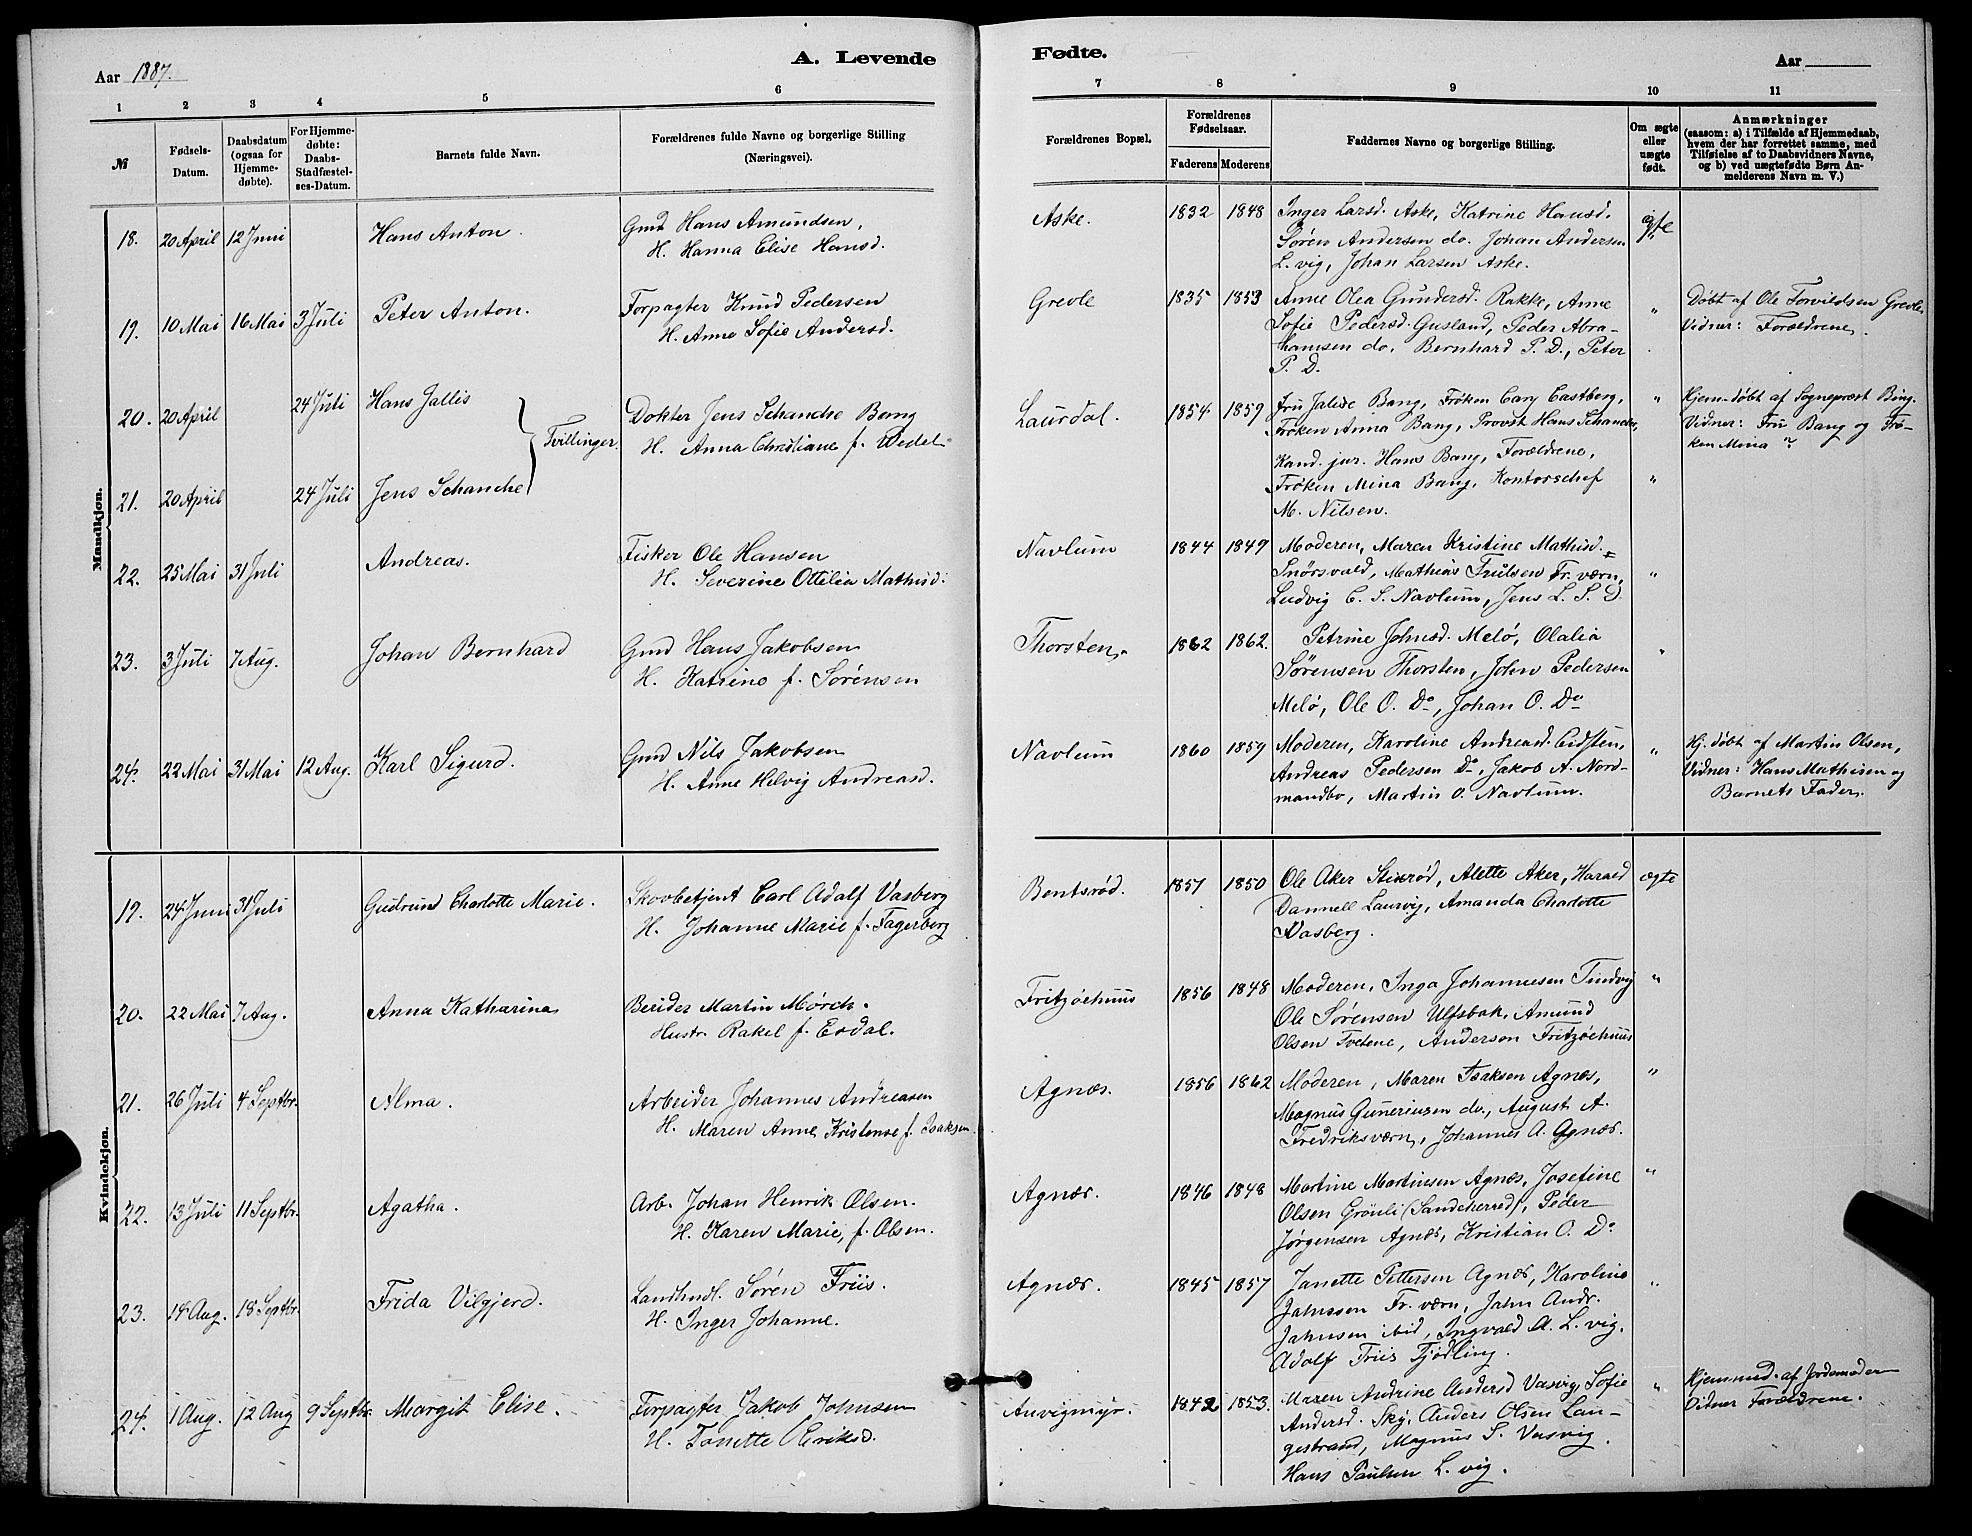 Aar 1887.
A. Levende
Fødte.
Aar
1 2 3 4 5 6
7 8 9 10 11
№
Fødsels-
Datum.
Daabsdatum
(ogsaa for
Hjemme-
døbte).
For Hjemme-
døbte:
Daabs-
Stadfæstel-
ses-Datum.
Barnets fulde Navn.
Forældrenes fulde Navne og borgerlige Stilling
(Næringsvei).
Forældrenes Bopæl.
Forældrenes
Fødselsaar.
Faderens Moderens
Faddernes Navne og borgerlige Stilling.
Om ægte
eller
uægte
født.
Anmærkninger
(saasom: a) i Tilfælde af Hjemmedaab,
hvem der har forrettet samme, med
Tilføielse af to Daabsvidners Navne,
og b) ved uægtefødte Børn An-
melderens Navn m. V.)
Mandkjøn.
18. 20 April 12 Juni Hans Anton.
Gmd Hans Amundsen,
H. Hanna Elise Hansd.
Aske. 1832 1848
Inger Larsd. Aske, Katrine Hansd.
Søren Andersen do. Johan Andersen
L. vig, Johan Larsen Aske.
19. 10 Mai 16 Mai 3 Juli Peter Anton.
Forpagter Knud Pedersen
H. Anne Sofie Andersd.
Grevle 1835 1853
Anne Olea Gundersd. Rakke, Anne
Sofie Pedersd. Gusland, Peder Abra-
hamsen do, Bernhard P. D., Peter
P. D.
"
Døbt af Ole Torvildsen Grevle
Vidner: Forældrene.
20. 20 April 24 Juli Hans Jallis
Tvillinger
Dokter Jens Schanche Bang
H. Anna Christiane f. Wedel
Laurdal. 1854 1859
Fru Bang, Frøken Cary Eastberg,
Frøken Anna Bang, Provst Hans Schanche,
Kand. jur. Hans Bang, Forældrene,
Frøken Mina Bang, Kontorschef
M. Nilsen.
"
Hjem-døbt af Sognepræst Bing.
Vidner: Fru Bang og Frø-
ken Mina "
21. 20 April 24 Juli Jens Schanche
"
22. 25 Mai 31 Juli Andreas.
Fisker Ole Hansen
H. Severine Ottilia Mathisd.
Navlum 1844 1849
Moderen, Maren Kristine Mathisd.
Snørsvald, Mathias Trulsen Fr. værn,
Ludvig C. S. Navlum, Jens L. S. D.
"
23. 3 Juli 7 Aug. Johan Bernhard
Gmd Hans Jakobsen
H. Katrine f. Sørensen
Thorsten. 1862 1862.
Petrine Johnsd. Melø, Olalia
Sørensen Thorsten, John Pedersen
Melø, Ole O. Do, Johan O. Do
"
24. 22 Mai 31 Mai 12 Aug. Karl Sigurd.
Gmd Nils Jakobsen
H. Anne Helvig Andreasd.
Navlum 1860 1859
Moderen, Karoline Andreasd. Eidsten,
Andreas Pedersen Do, Jakob A. Nord-
mandbo, Martin O. Navlum.
"
Hj. døbt af Martin Olsen,
Vidner: Hans Mathisen og
Barnets Fader.
Kvindekjøn.
19. 24 Juni 31 Juli Gudrund Charlotte Marie.
Skovbetjent Carl Adalf Vasberg
H. Johanne Marie f. Fagerberg
Bentsrød. 1857 1850
Ole Aker Stixrød, Alette Aker, Harald
Dannell Laurvig, Amanda Charlotte
Vasberg.
ægte
20. 22 Mai 7 Aug. Anna Katharina
Berider Martin Mørch.
Hustr. Rakel f. Eodal.
Fritzöehuus 1856 1848
Moderen, Inga Johannesen Tindvig
Ole Sørensen Ulfsbak, Amund
Olsen Tvetene, Anderson Fritzöehuus
"
21. 26 Juli 4 Septbr. Alma.
Arbeider Johannes Andreasen
H. Maren Anne Kristense f. Isaksen.
Agnæs. 1856 1862
Moderen, Maren Isaksen Agnæs,
Magnus Guneriusen do., August A.
Fredriksværn, Johannes A. Agnæs.
"
22. 13 Juli 11 Septbr. Agatha.
Arb. Johan Henrik Olsen.
H. Karen Marie, f. Olsen.
Agnæs. 1846 1848
Martine Martinsen Agnæs, Josefine
Olsen Grønli (Sandeherred), Peder
Jørgensen Agnæs, Kristian O. Do
"
23. 14 Aug. 18 Septbr. Frida Vilgjerd.
Landhndl. Søren Friis.
H. Inger Johanne.
Agnæs. 1845 1857
Janette Pettersen Agnæs, Karoline
Jahnssen Fr. værn, Jahn Andr.
Jahnsen ibid, Ingvald A. L. vig.
Adolf Friis Tjødling.
"
24. 1 Aug. 12 Aug 9 Septbr. Margit Elise.
Forpagter Jakob Johnsen
H. Tonette Olriksd.
Auvigmyr. 1842 1853.
Maren Andrine Andersd Vasvig, Sofie
Andersd. Sky, Anders Olsen Lan-
gestrand, Magnus S. Vasvig.
Hans Paulsen L. vig.
"
Hjemmed. af Jordemoder
Vidner Forældrene.